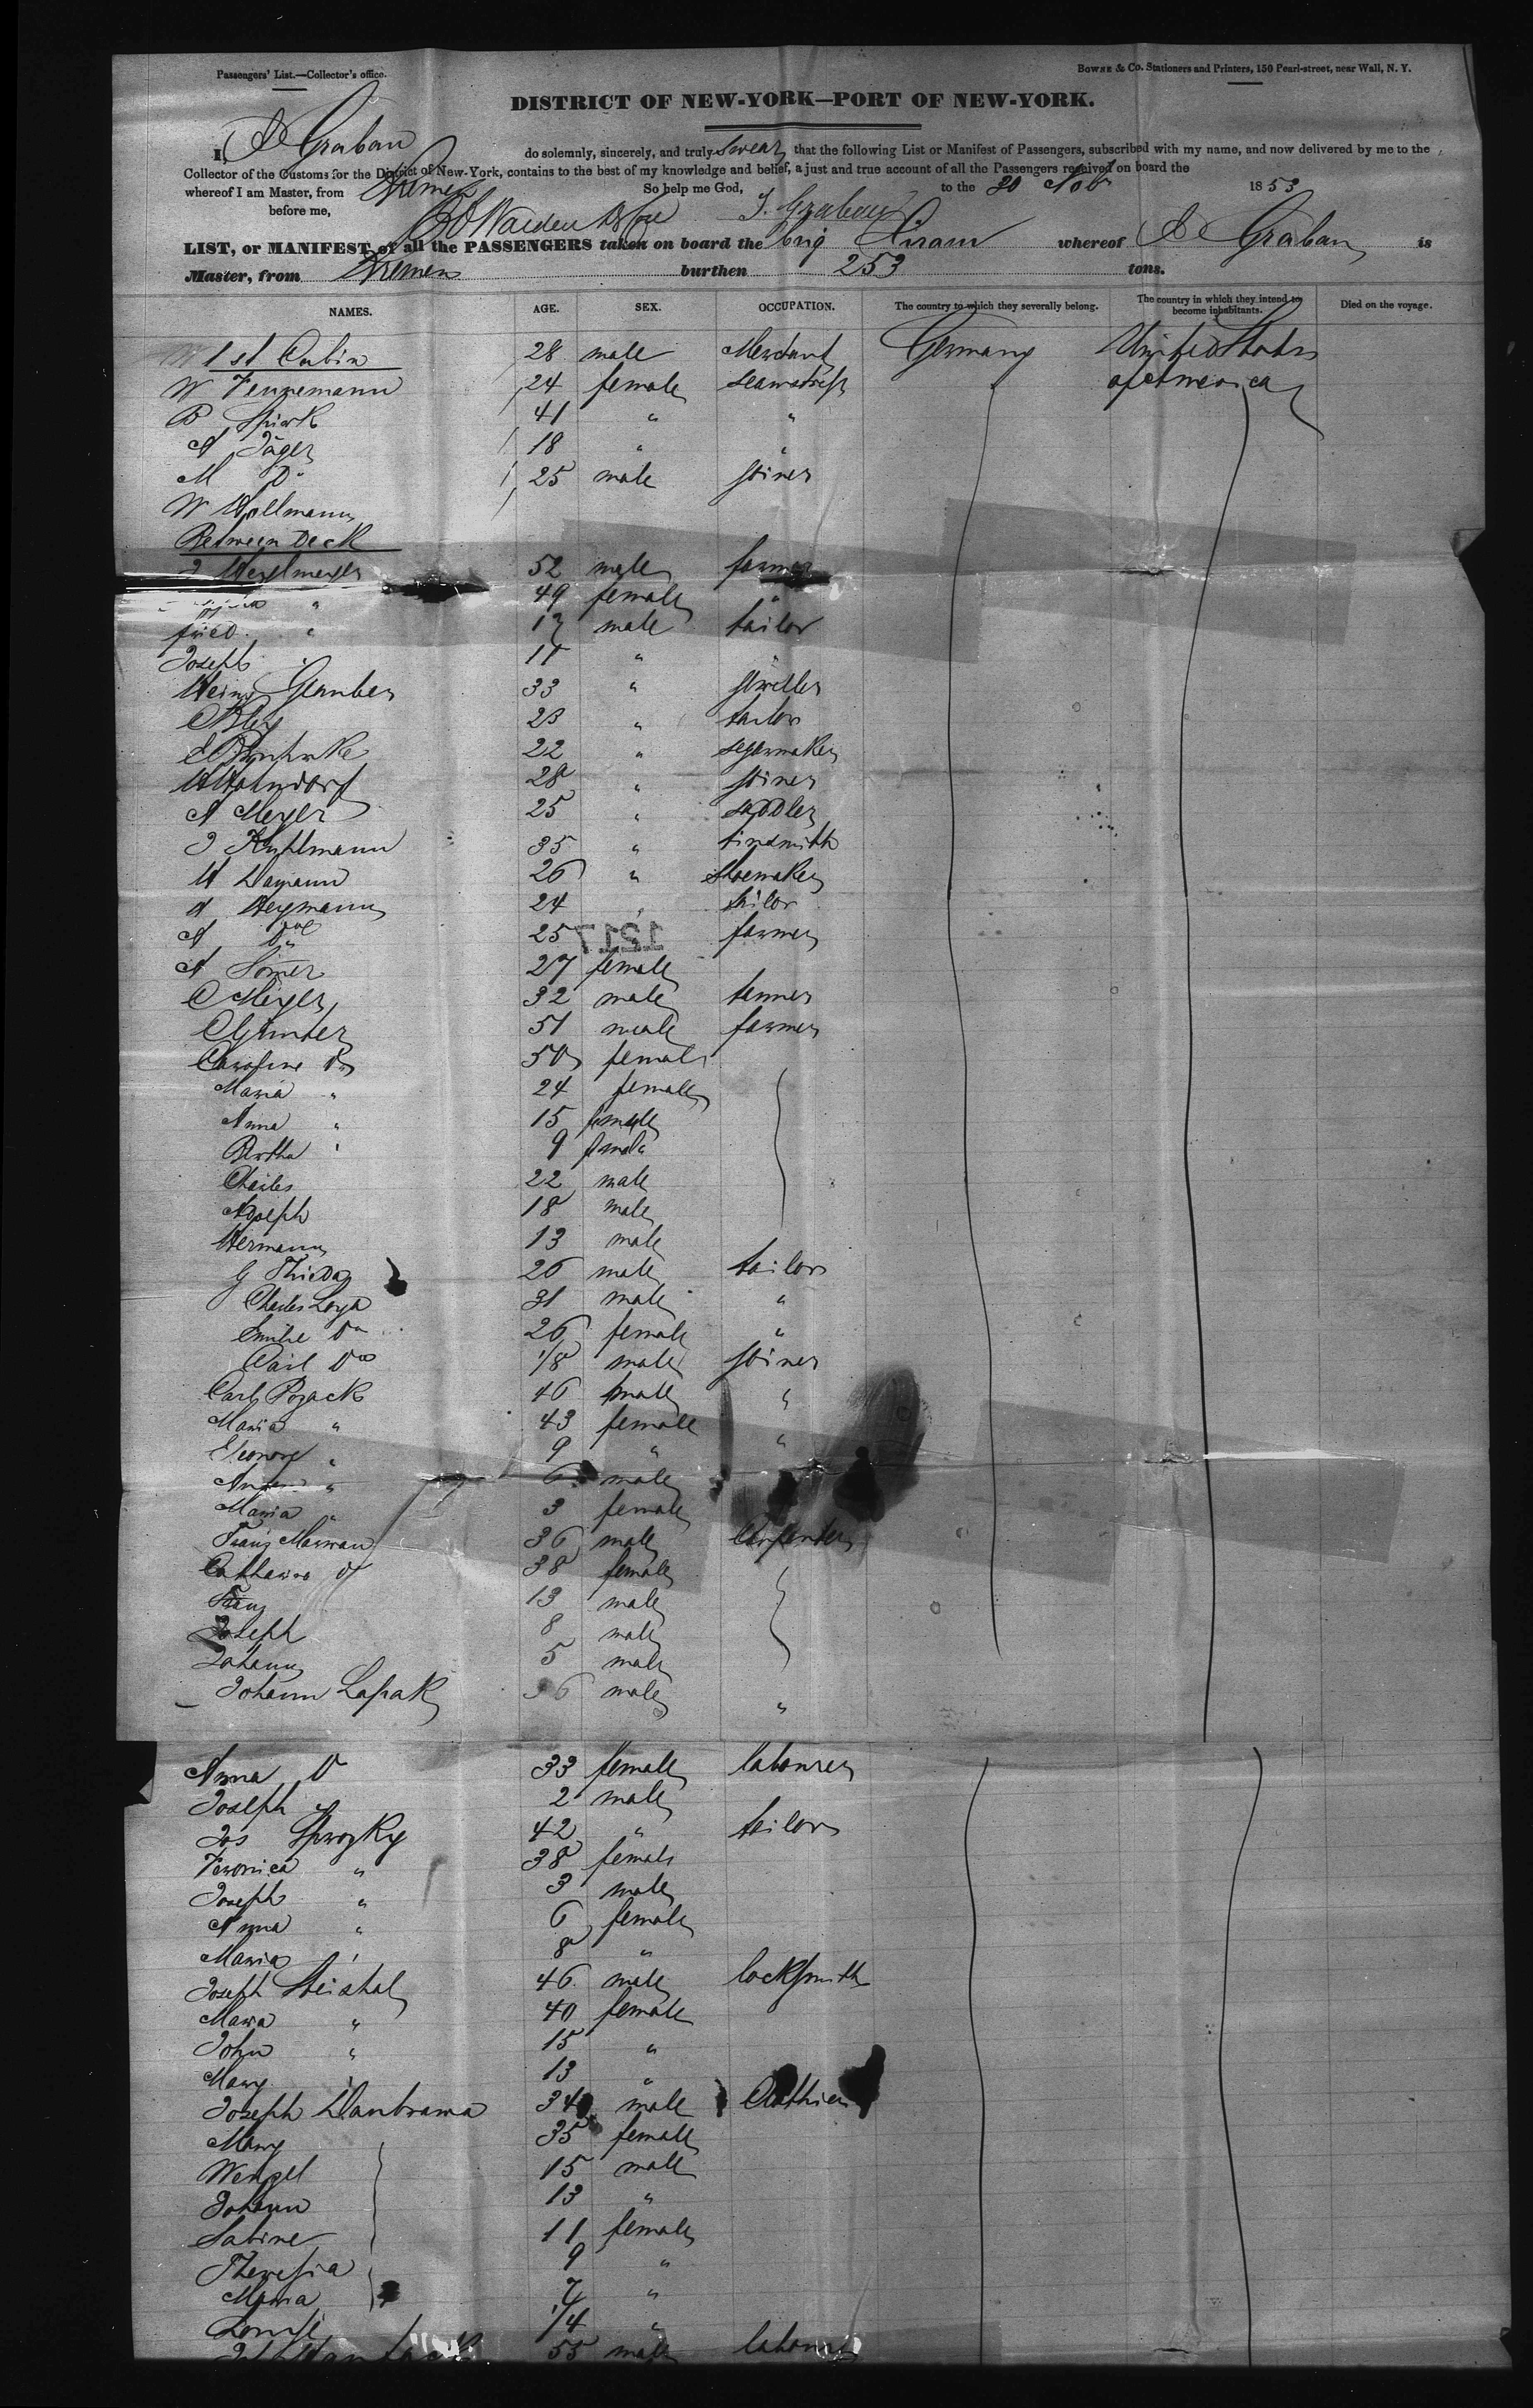 Passengers' List.—Collector's office.
Bowne & Co. Stationers and Printers, 150 Pearl-street, near Wall, N. Y.
DISTRICT OF NEW-YORK—PORT OF NEW-YORK.
I, D Graban do solemnly, sincerely, and truly swear that the following List or Manifest of Passengers, subscribed with my name, and now delivered by me to the
Collector of the Customs for the District of New-York, contains to the best of my knowledge and belief, a just and true account of all the Passengers received on board the
whereof I am Master, from Bremen So help me God, to the 30 Nobr 1853
before me, Graban
LIST, or MANIFEST of all the PASSENGERS taken on board the brig Hiram whereof D Graban is
Master, from Bremen burthen 253 tons.
NAMES. AGE. SEX. OCCUPATION. The country to which they severally belong. The country in which they intend to become inhabitants. Died on the voyage.
1st Cabin 28 male Merchant Germany United States
W Vennemann 24 female seamstress of America
B Spirk 41 " "
A Jäger 18 " "
M Do 25 male joiner
W Hollmann
Between Deck
52 male farmer
" 49 female "
fried. " 17 male tailor
Joseph " 11 " "
Heinr Gerber 33 " 
23 " tailor
22 " segarmaker
H Hohndorf 28 " joiner
A Meyer 25 " saddler
J Kuhlmann 35 " tinsmith
H Damann 26 " Shoemaker
A Heymann 24 " tailor
A Do 25 farmer
1217
A Somer 27 female
C Meyer 32 male tanner
C Gunter 51 male farmer
Caroline Do 50 female
Maria " 24 female
Anna " 15 female
Bertha " 9 female
Charles 22 male
Adolph 18 male
Hermann 13 male
G Thieda 26 male tailor
Charles Loya 31 male "
Emilie Do 26 female "
Carl Do 1/8 male joiner
Carl Pozack 46 male "
Maria " 43 female "
Eleonore " 9 "
Anton " 6 male
Maria " 3 female
Franz Marwan 36 male Carpenter
Catharina Do 38 female
Franz 13 male
Joseph 8 male
Johann 5 male
Johann Lapak 36 male "
Anna D 33 female labourer
Joseph " 2 male
Jos 42 " tailor
Veronica " 38 female
Joseph " 3 male
Anna " 6 female
Maria " 8 "
Joseph Steiskal 46 male locksmith
Maria " 40 female
John " 15 "
Mary " 13 "
Joseph Daubrawa 34 male Clothier
Mary 35 female
Wenzel 15 male
Johann 13 "
Sabine 11 female
Theresia 9 "
Maria 7 "
Louise 1/4 "
55 male labourer